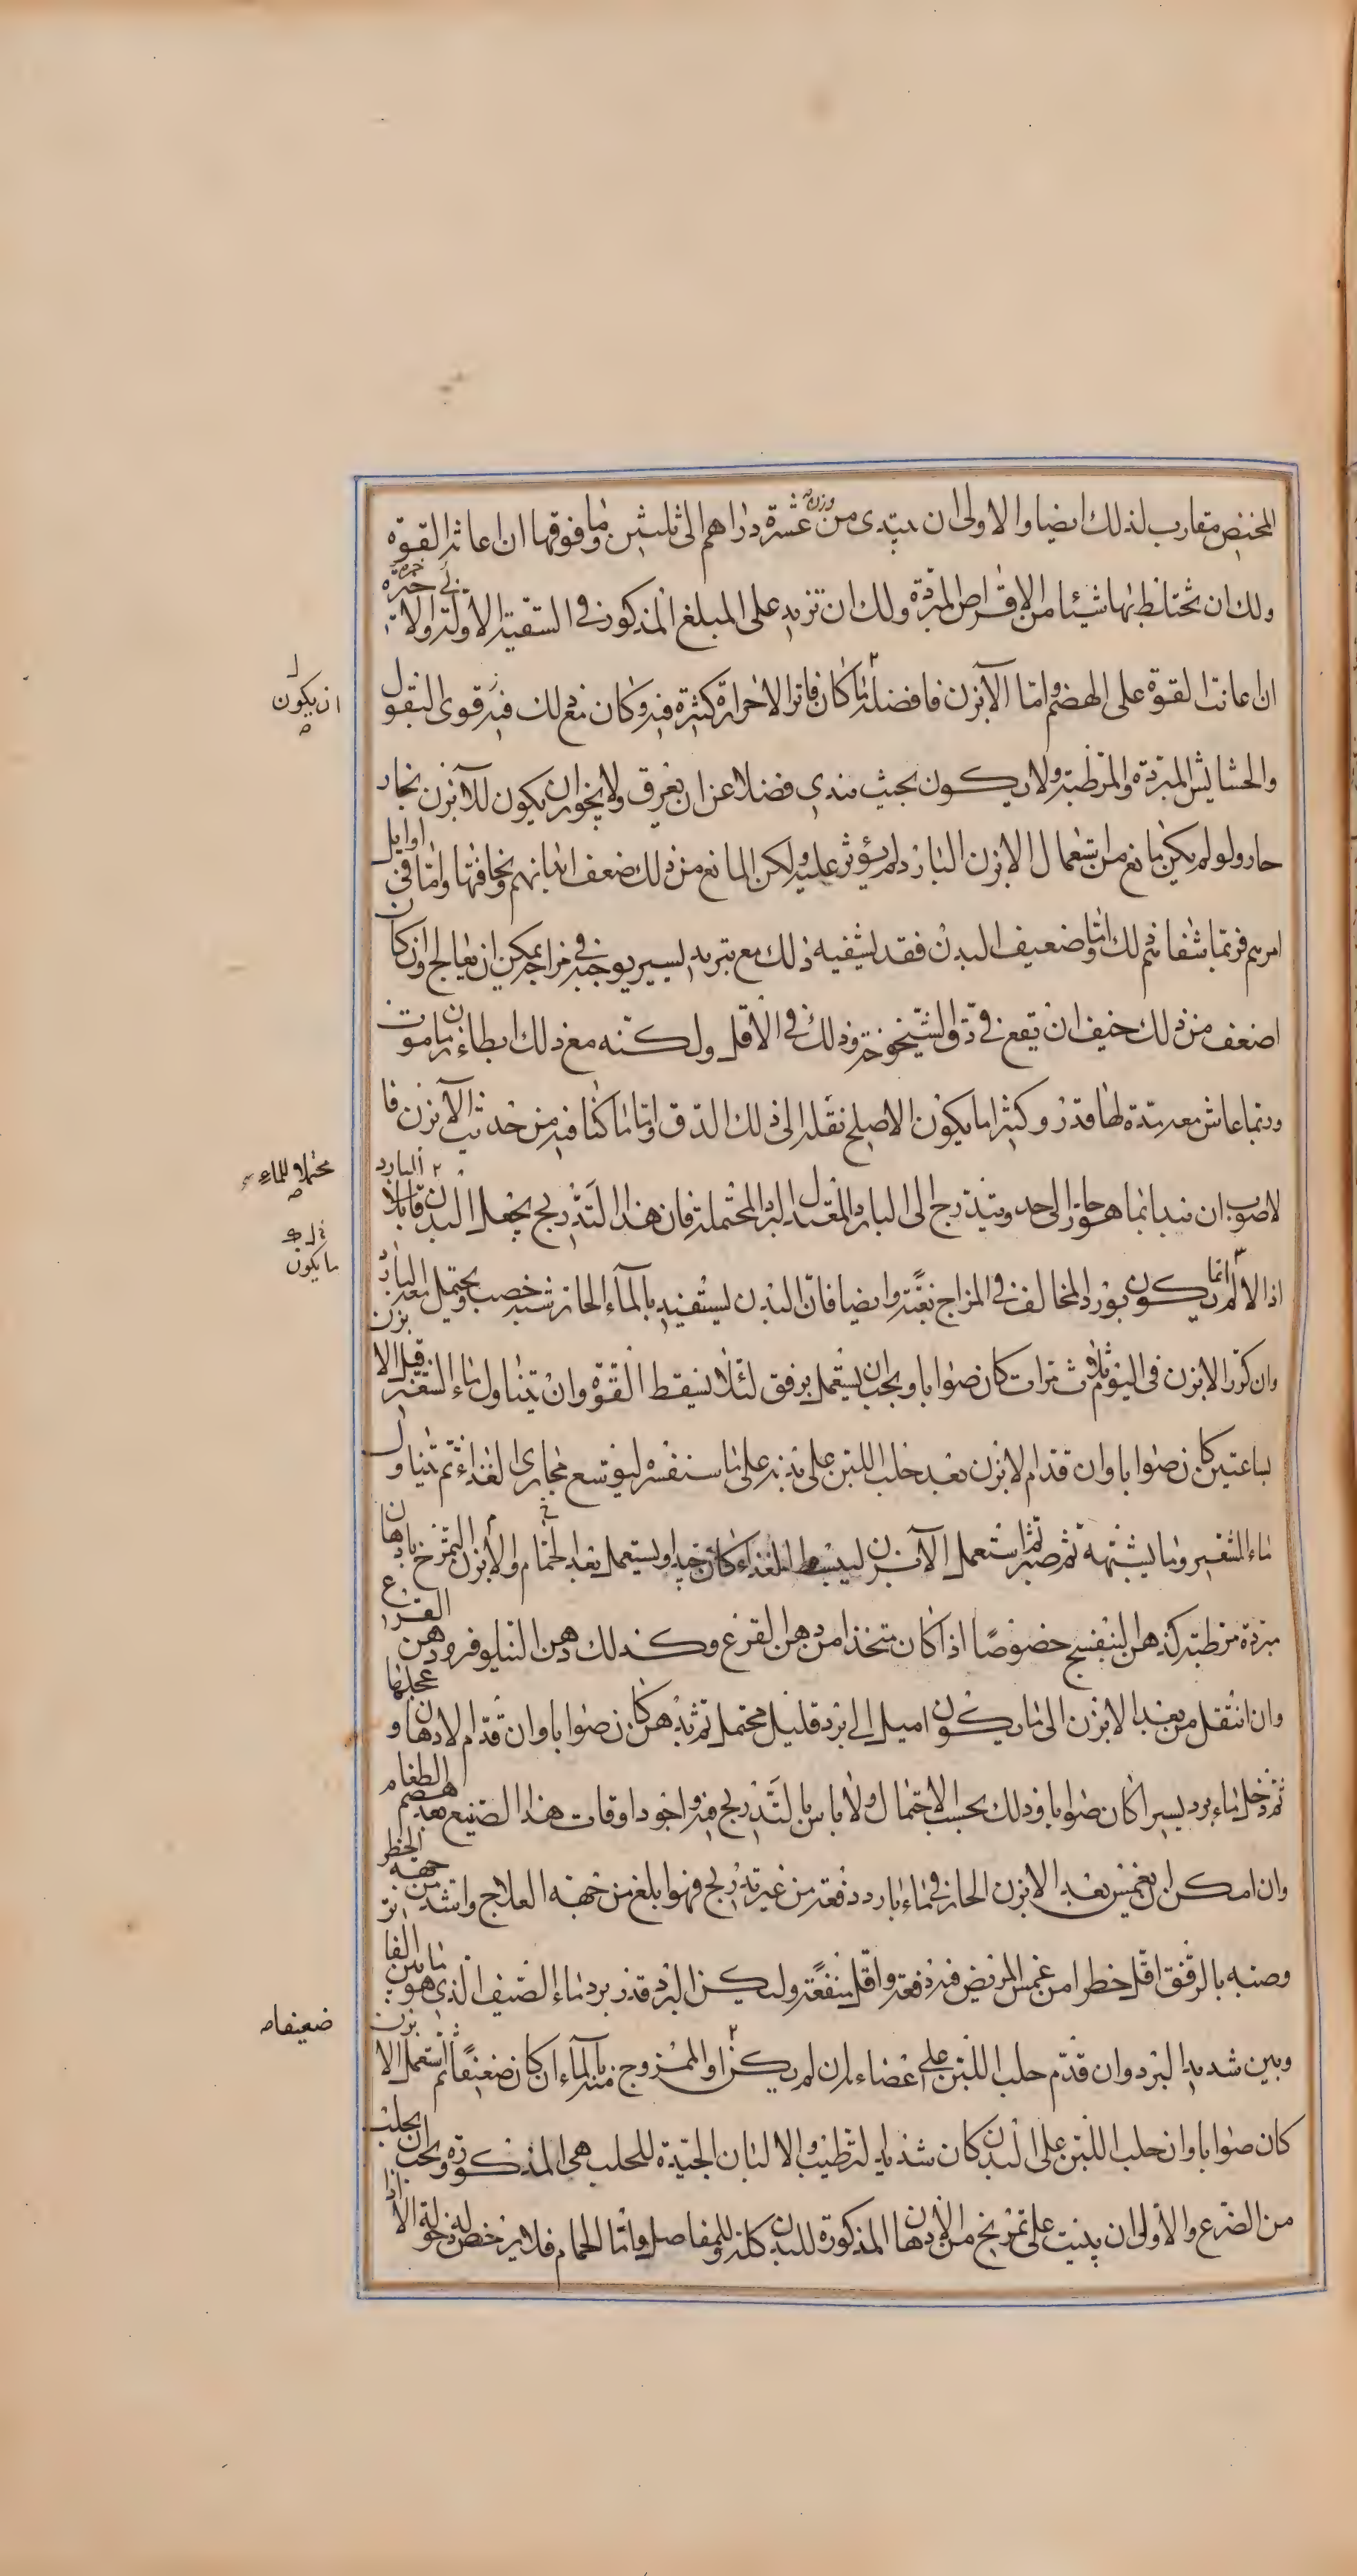 المخيض مقارب لذلك ايضا والاولى ان يبتدى من وزن عشرة دراهم الى ثلثين وما فوقها ان اعانت القوة
ولك ان تختلط بها شيئا من الاقراص المبردة ولك ان تزيد على المبلغ المذكور فى السقية الاولة والاخيرة
ان اعانت القوة على الهضم واما الآبزن فافضله ما كان فاترا لا حرارة كثيرة فيه وكان مع ذلك فيه قوى البقول
ان يكون
والحشايش المبردة والمرطبة ولا يكون بحيث يندى فضلا عن ان يعرق ولا يجوز ان يكون للآبزن بخار
حار ولو لم يكن مانع من استعمال الابزن البارد لم يؤثر عليه ولكن المانع من ذلك ضعف ابدانهم ونحافتها واما فى اوايل
امرهم فربما شفاهم ذلك واما ضعيف البدن فقد يشفيه ذلك مع تبريد يسير يوجبه فى مزاجه يمكن ان يعالج وان كان
اضعف من ذلك خيف ان يقع فى دق الشيخوخة وذلك فى الاقل ولكنه مع ذلك ابطاء زمان موت
وربما عاش معه مدة لها قدر وكثيرا ما يكون الاصلح نقله الى ذلك الدق واما ما كنا فيه من حديث الآبزن فا
لاصوب ان يبدا بما هو حار الى حد ويتدرج الى البارد المعتدل البرد المحتملة فان هذا التدريج يجعل البدن قابلا البارد
محتملا للماء
اذ الالم انما يكون بورد المخالف فى المزاج بغتة وايضا فان البدن يستفيد بالمآء الحار شبه خصب ويحتمل معه البارد
ما يكون
وان كرر الابزن فى اليوم ثلاث مرات كان صوابا ويجب ان يستعمل برفق لئلا تسقط القوة وان تناول ماء الشعير قبل الابزن
بساعتين كان صوابا وان قدم الابزن بعد حلب اللبن على بدنه على ما سنفسره ليوسع مجارى الغذاء ثم تناول
ماء الشعير وما يشبهه ثم صبر ثم استعمل الآبزن ليبسط الغذاء كان جيدا ويستعمل بعد الحمام والابزن التمرخ بادهان
مبردة مرطبة كدهن البنفسج خصوصا اذا كان متخذا من دهن القرع وكذلك دهن النيلوفر ودهن القرع
وان انتقل من بعد الابزن الى ما يكون اميل الى برد قليل محتمل ثم تدهن كان صوابا وان قدم الادهان وعجلها
ثم دخل ماء برد يسيرا كان صوابا وذلك بحسب الاحتمال ولا باس بالتدريج فيه واجود اوقات هذا الصنيع بعد هضم الطعام
وان امكن ان يغمس بعد الابزن الحار فى ماء بارد دفعة من غير تدريج فهو ابلغ من جهة العلاج واشد من جهة الخطر
وصبه بالرفق اقل خطرا من غمس المريض فيه دفعة واقل منفعة وليكن البرد قدر برد ماء الصيف الذى هو ما بين الفاتر
وبين شديد البرد وان قدم حلب اللبن على اعضاءه ان لم يكن او الممزوج منه بالمآء ان كان ضعيفا ثم استعمل الابزن
ضعيفا
كان صوابا وان حلب اللبن على البدن كان شديد الترطيب والالبان الجيدة للحلب هى المذكورة ويجب ان يحلب
من الضرع والاولى ان يبيت على تمريخ من الادهان المذكورة للبدن كله وللمفاصل واما الحمام فلا يرخص له دخوله الا اذا